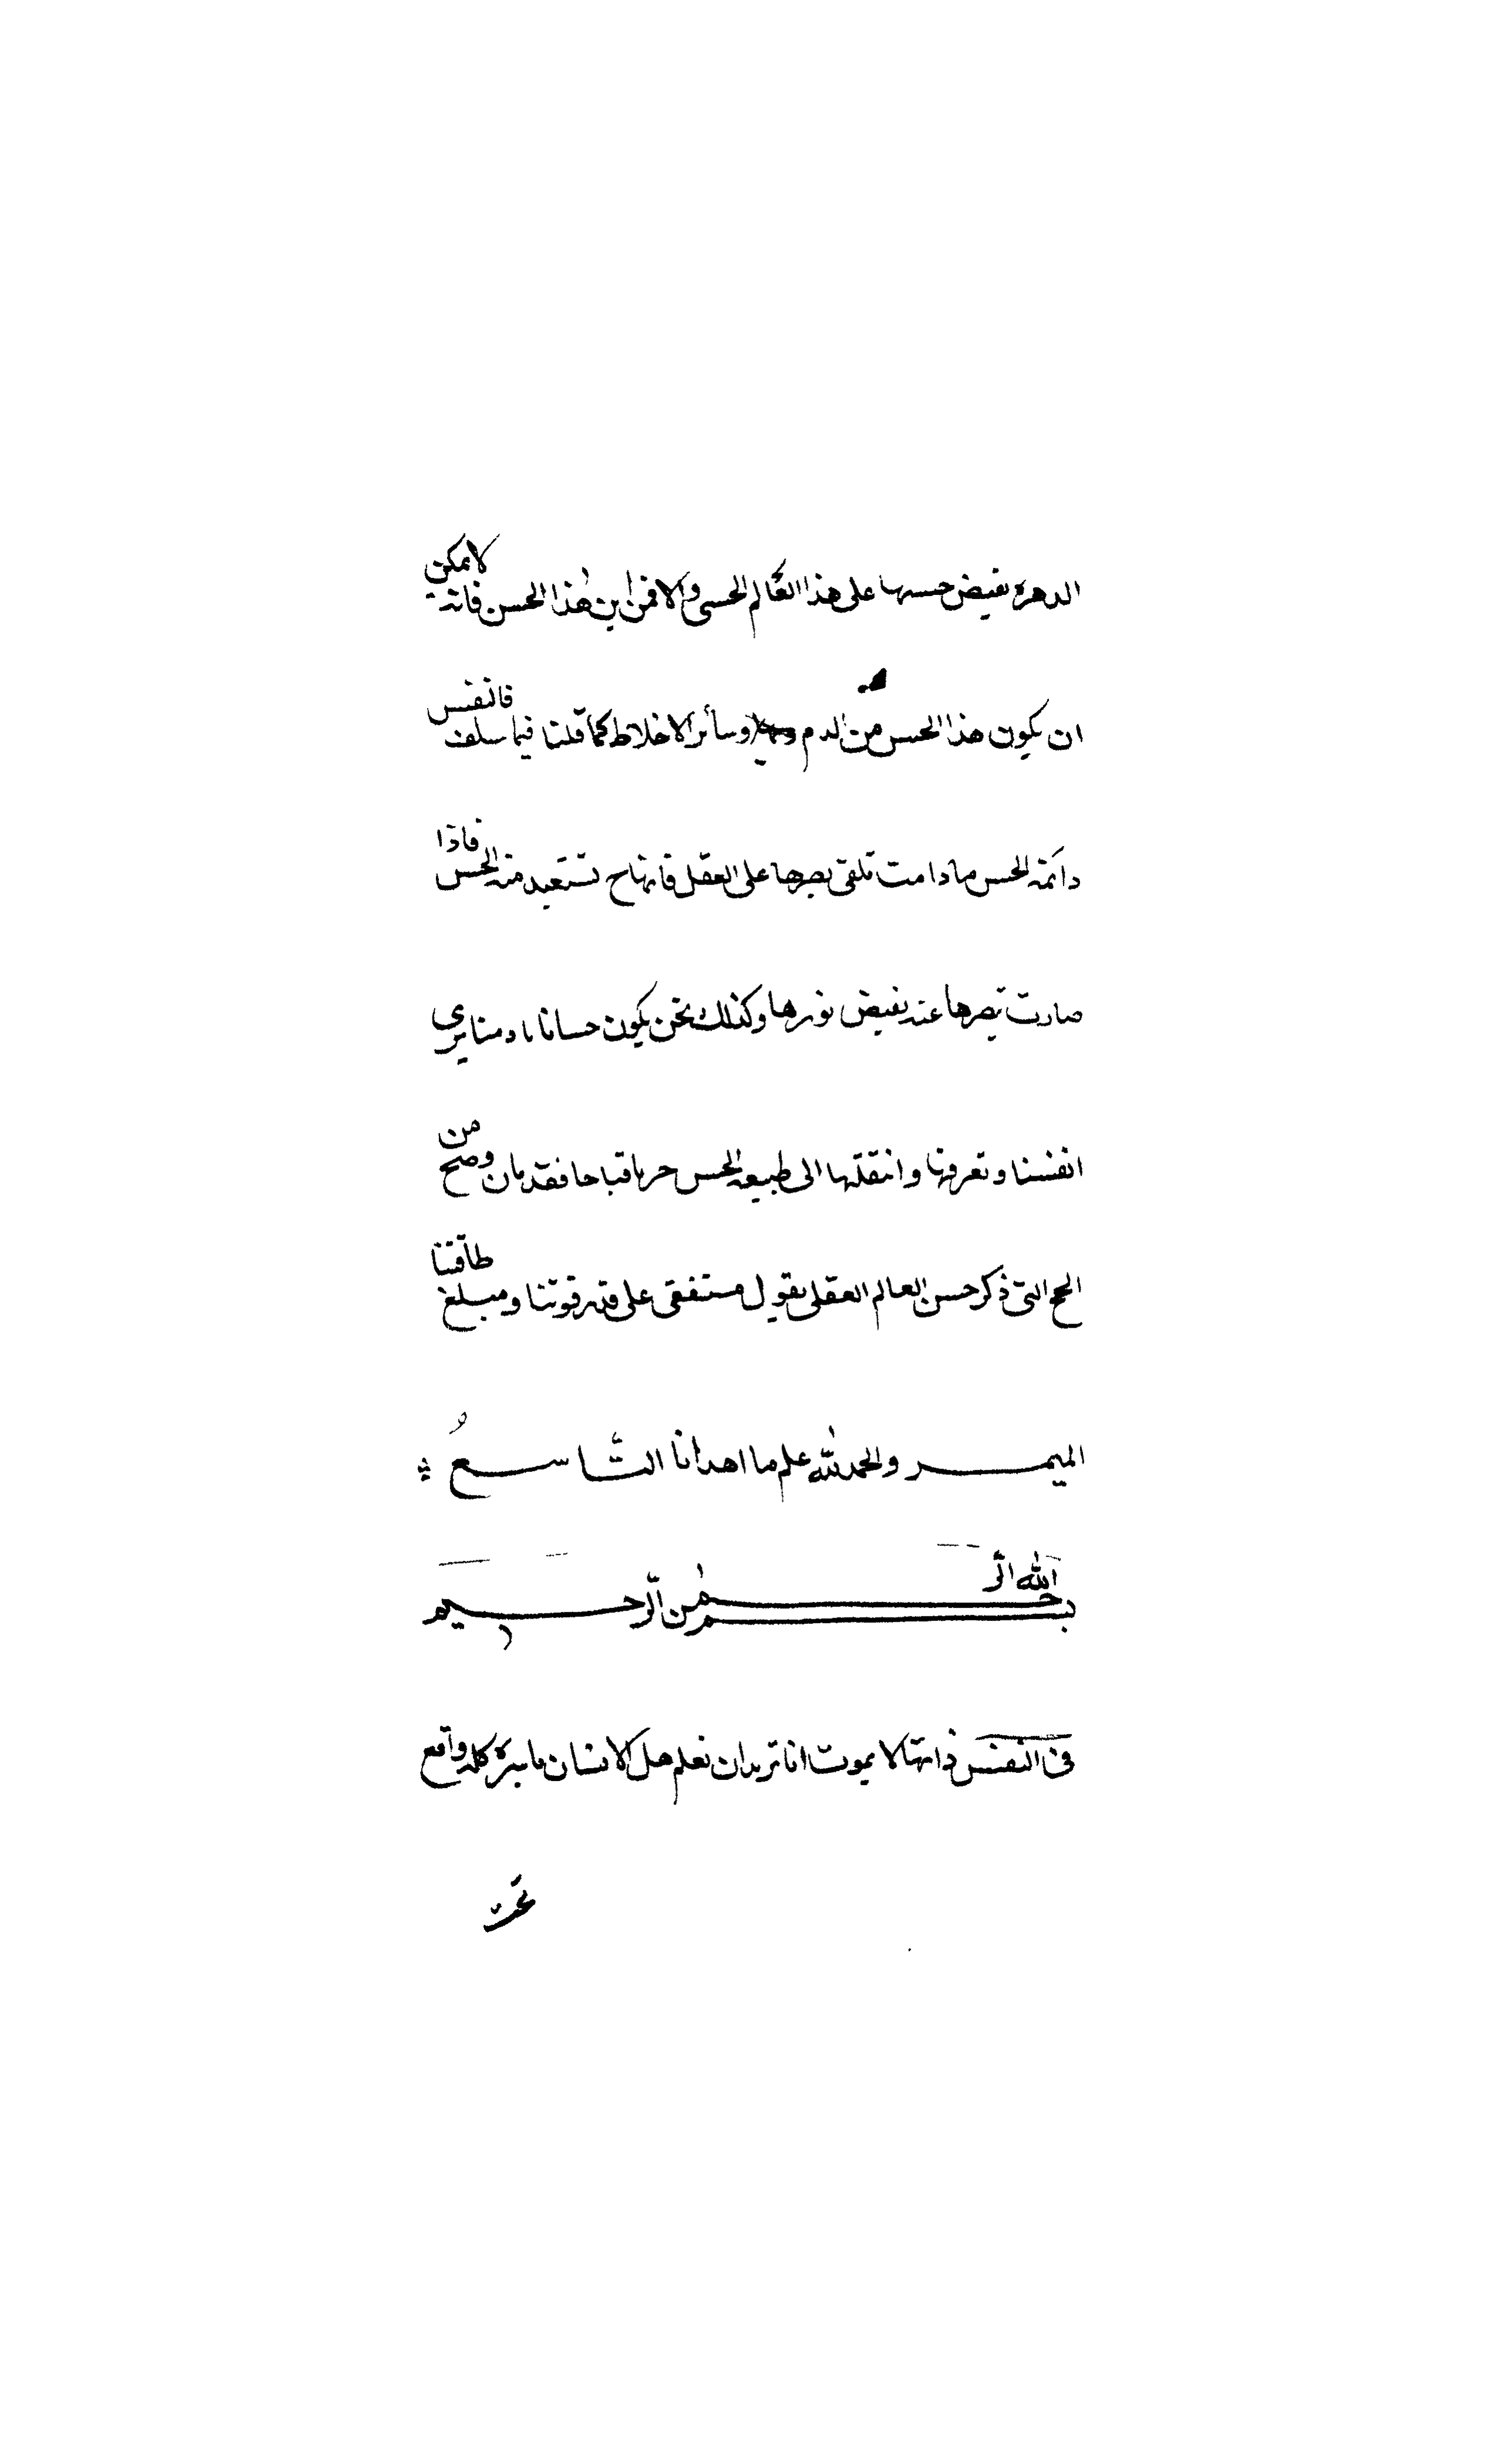 الدهرة تفيض حسنها على هذا العالم الحسى والا فمن اين هذا الحسن فانه لا يمكن
ان يكون هذا الحسن من الدم وسائر الاخلاط كما قلنا فيما سلف فالنفس
دائمة الحسن ما دامت تلقى بصرها على العقل فانها ح تستفيد منه الحسن فاذا
صارت بصرها عنه نفيض نورها وكذلك نحن يكون حسانا ما دمنا نرى
انفسنا وتعرفها وانتقلتها الى طبيعه الحسن قباحا فقد بان وصح من
الحجج التى ذكر حسن العالم العقلى بقول مستقصى على قدر قوتنا ومبلغ طاقتنا
والحمد لله على ما اهدانا الميمر التاسع
بسم الله الرحمن الرحيم
فى النفس ذاتها لا يموت انا تريد ان نعلم هل الانسان باسره كله واقع
تحت